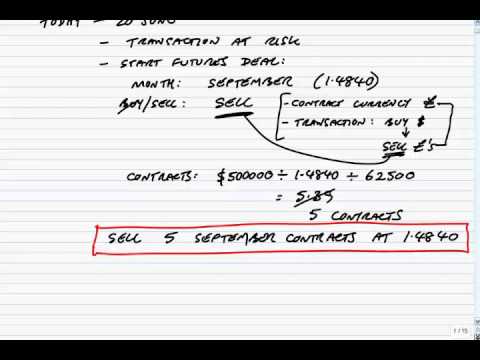 TODAY - 20 JUNE
- TRANSACTION AT RISK
- START FUTURES DEAL:
MONTH: SEPTEMBER (1.4840)
BUY/SELL: SELL
- CONTRACT CURRENCY £
- TRANSACTION: BUY $
SELL £'s
CONTRACTS: $500000 ÷ 1.4840 ÷ 62500
= 5.39
5 CONTRACTS
SELL 5 SEPTEMBER CONTRACTS AT 1.4840
1 / 15